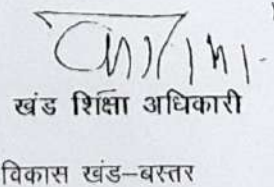 खंड शिक्षा अधिकारी
विकास खंड–बस्तर